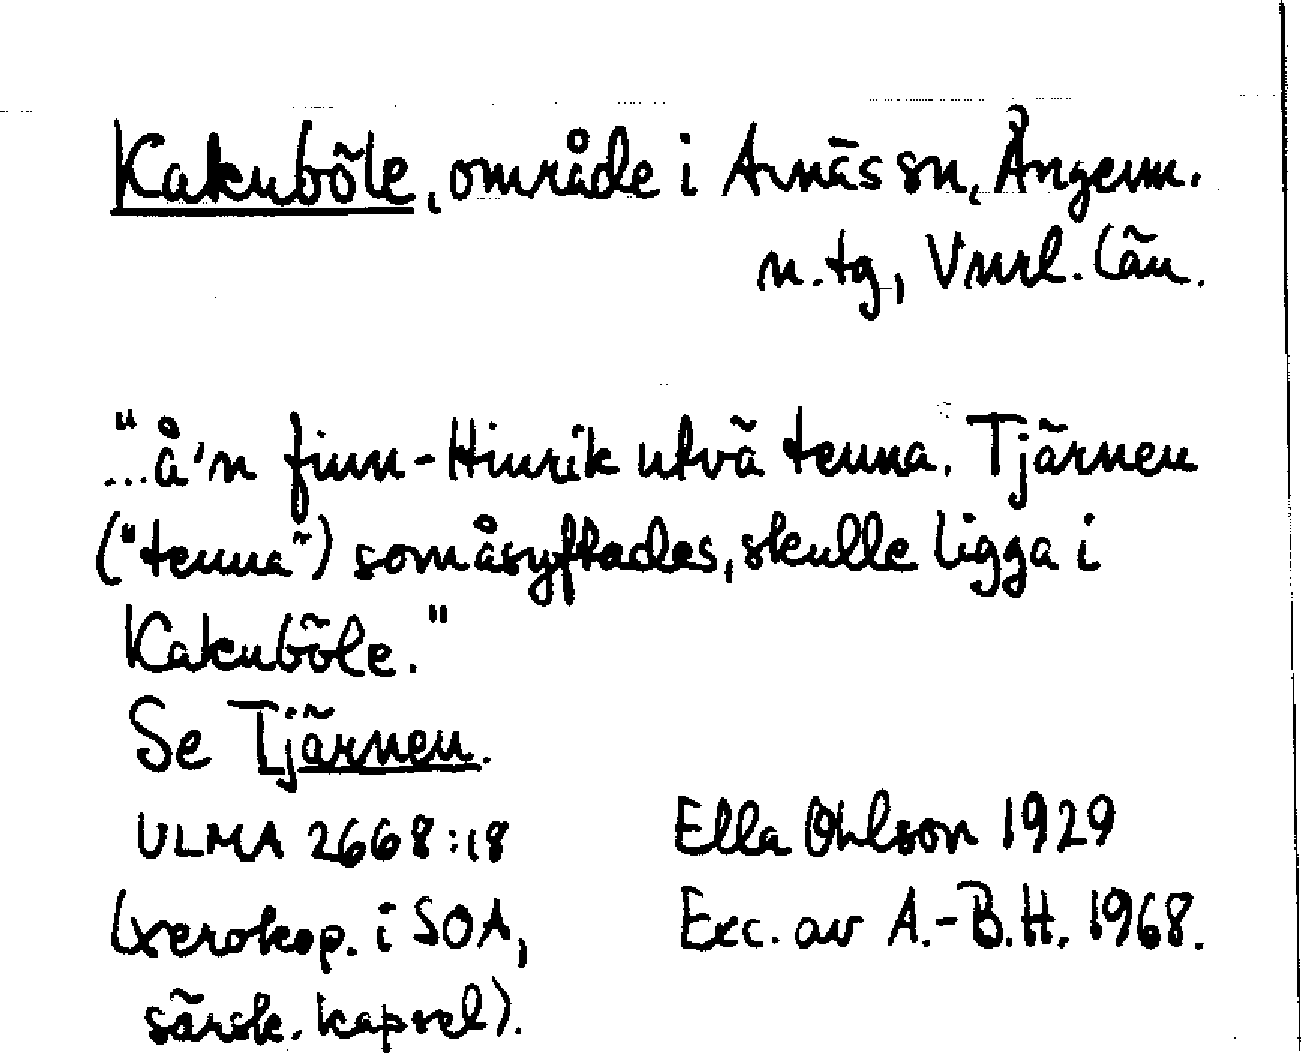 Kakuböle, område i Arnäs sn, Ångerm.
n. tg, Vnrl. län.
"...å'n finn-Hinrik utvä tenna. Tjärnen
("tenna") som åsyftades, skulle ligga i
Kakuböle."
Se Tjärnen.
ULMA 2668:18
(xerokop. i SOA,
särsk. kapsel).
Ella Ohlson 1929
Exc. av A.-B.H. 1968.